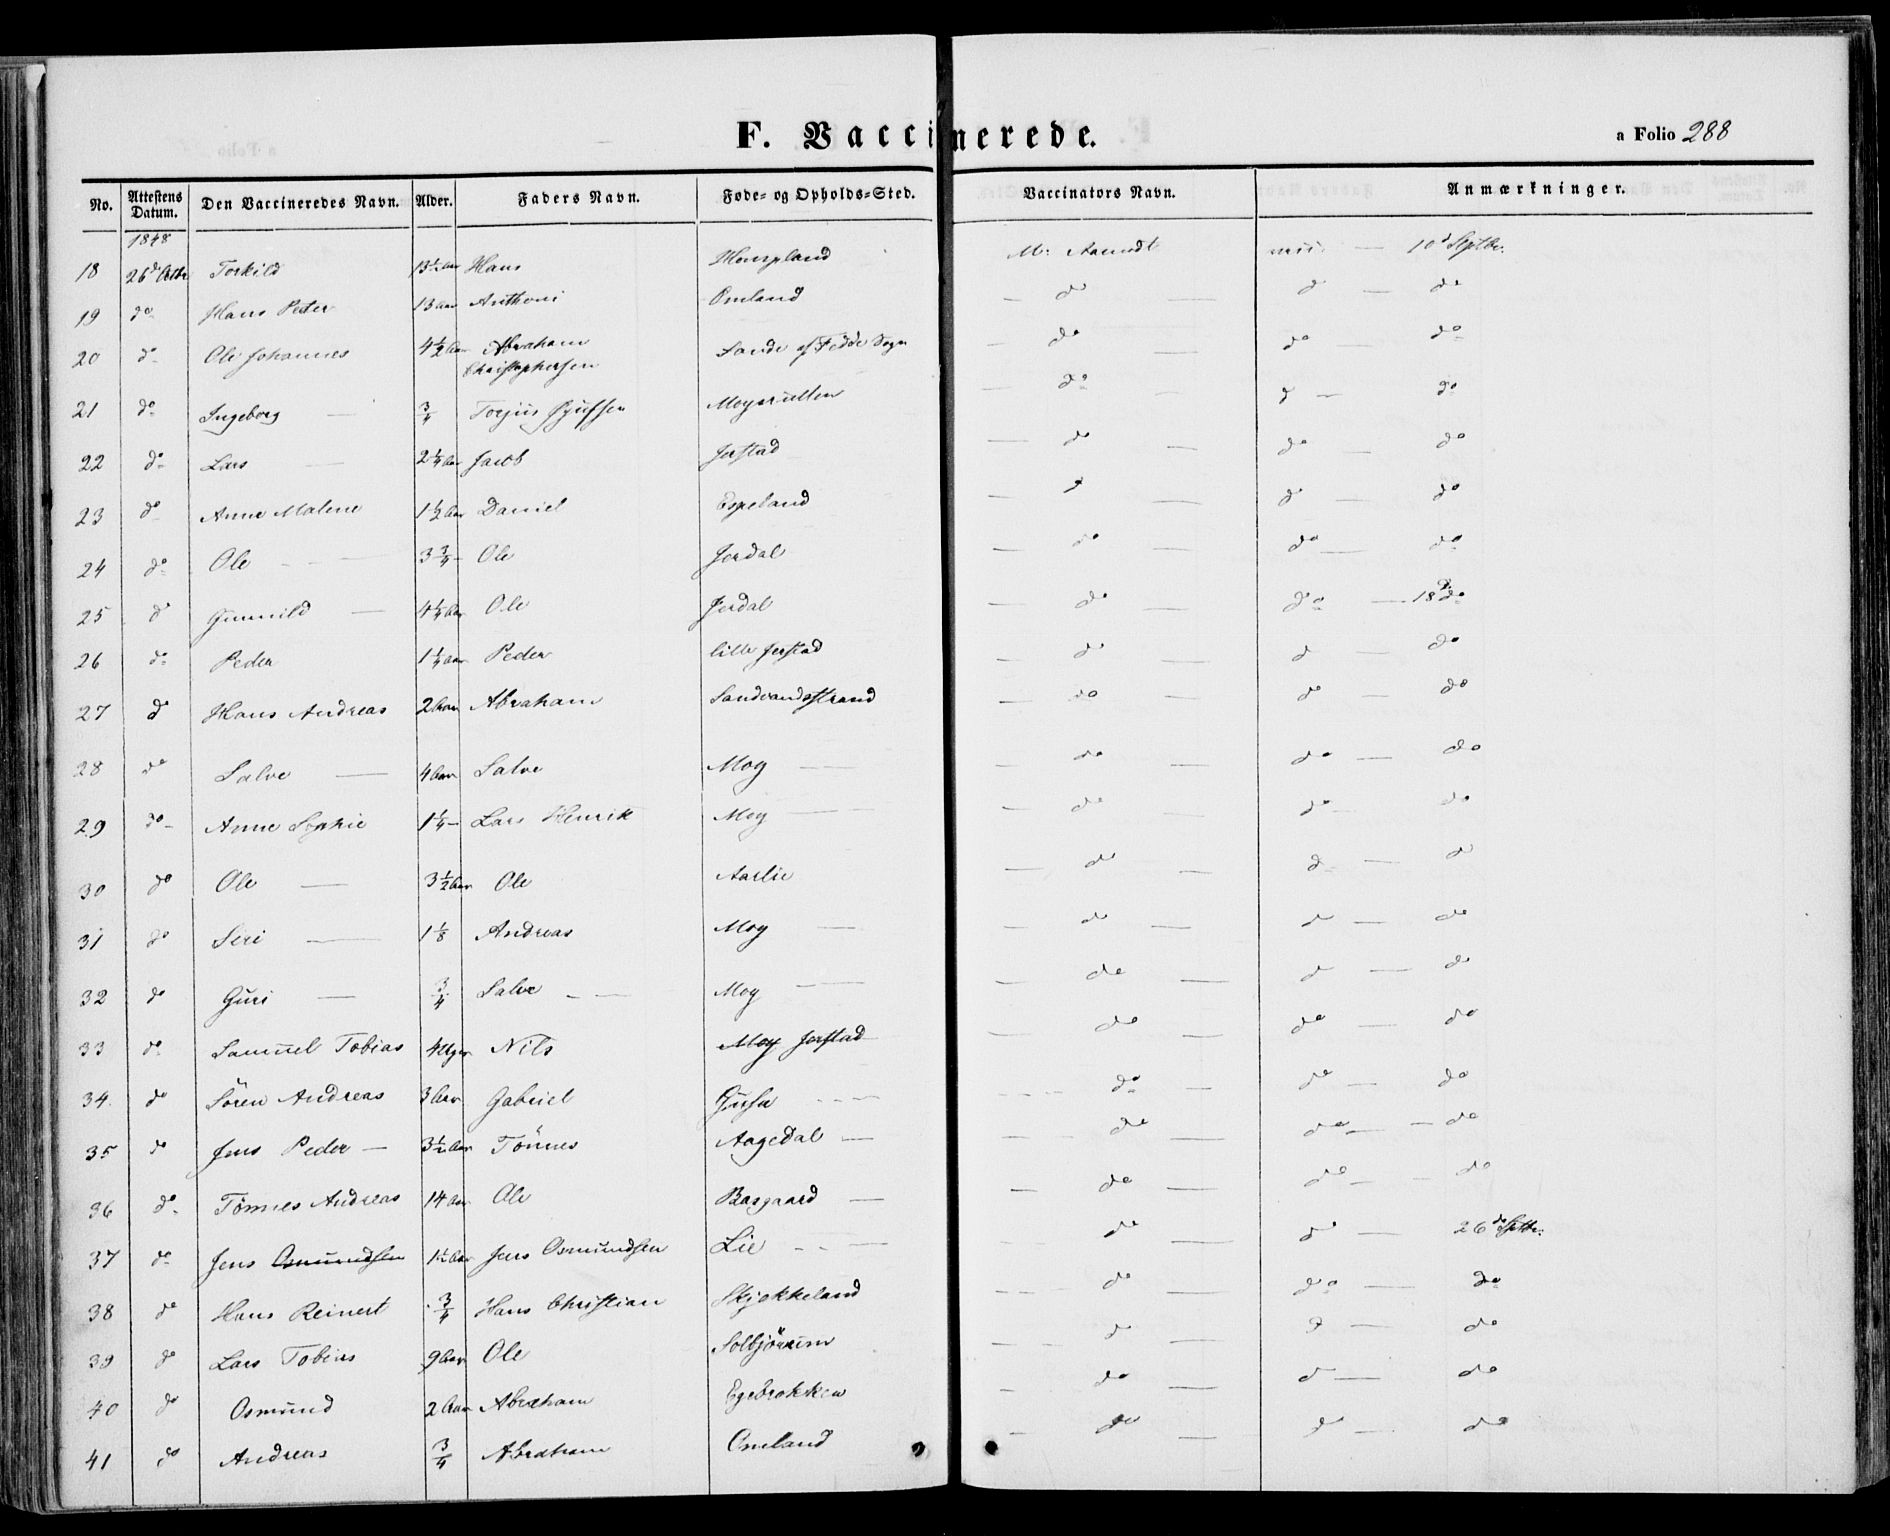 F. Vaccinerede.
a Folio 288
No. Attestens Datum. Den Vaccineredes Navn. Alder. Faders Navn. Føde- og Opholds-Sted. Vaccinators Navn. Anmærkninger.
1848
18 26d Octbr Torkild 13½ aar Hans M. Aamodt 10d Septbr.
19 do Hans Peter 13 aar Anthoni Omland do do do
20 do Ole Johannes 4½ aar Abraham Christophersen Sande af Fedde Sogn do do do
21 do Ingeborg ¾ Torjus Moy do do do
22 do Lars 2¼ aar Jacob Jerstad do do do
23 do Anne Malene 1½ aar Daniel Espeland do do do
24 do Ole 3¾ Ole Jerdal do do do
25 do Gunnild 4¼ aar Ole Jerdal do do 18d do
26 do Peder 1¼ aar Peder lille Jerstad do do do
27 do Hans Andreas 2 aar Abraham Sandvandsstrand do do do
28 do Salve 4 aar Salve Moy do do do
29 do Anne Sophie 1¼ Lars Henrik Moy do do do
30 do Ole 3½ aar Ole Aarlie do do do
31 do Seri 1⅛ Andreas Moy do do do
32 do Guri ¾ Salve Moy do do do
33 do Samuel Tobias 4 Uger Nils Moy Jerstad do do do
34 do Sören Andreas 3 aar Gabriel do do do
35 do Jens Peder 3½ aar Tönnes Aagedal do do do
36 do Tönnes Andreas 14 aar Ole Basgaard do do do
37 do Jens Osmundsen 1½ aar Jens Osmundsen Lie do do 26de Septbr.
38 do Hans Reinert ¾ Hans Christian Skjekkeland do do do
39 do Lars Tobias 9 aar Ole Solbjörum do do do
40 do Osmund 2 aar Abraham Egebrokken do do do
41 do Andreas ¾ Abraham Omland do do do